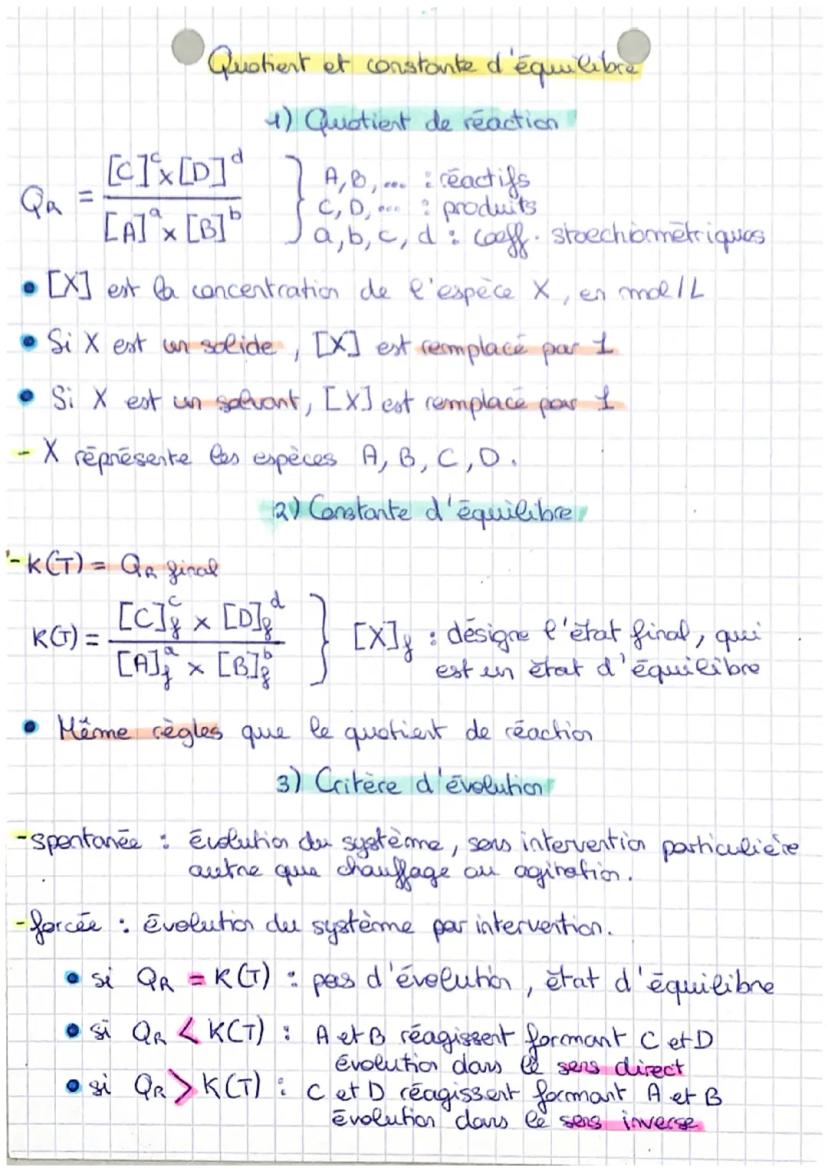 Quotient et constante d'équilibre
1) Quotient de réaction
QR = [C]^c x [D]^d / [A]^a x [B]^b } A, B, ... : réactifs
C, D, ... : produits
a, b, c, d : coeff. stoechiomētriques
• [X] est la concentration de l'espèce X, en mol/L
• Si X est un solide, [X] est remplacé par 1
• Si X est un solvant, [X] est remplacé par 1
- X réprésente les espèces A, B, C, D.
2) Constante d'équilibre
- K(T) = QR final
K(T) = [C]f^c x [D]f^d / [A]f^a x [B]f^b } [X]f : désigne l'état final, qui
est un état d'équilibre
• Même règles que le quotient de réaction
3) Critère d'évolution
- spontanée : évolution du système, sans intervention particulière
autre que chauffage ou agitation.
- forcée : évolution du système par intervention.
• si QR = K(T) : pas d'évolution, état d'équilibre
• si QR < K(T) : A et B réagissent formant C et D
évolution dans le sens direct
• si QR > K(T) : C et D réagissent formant A et B
évolution dans le sens inverse